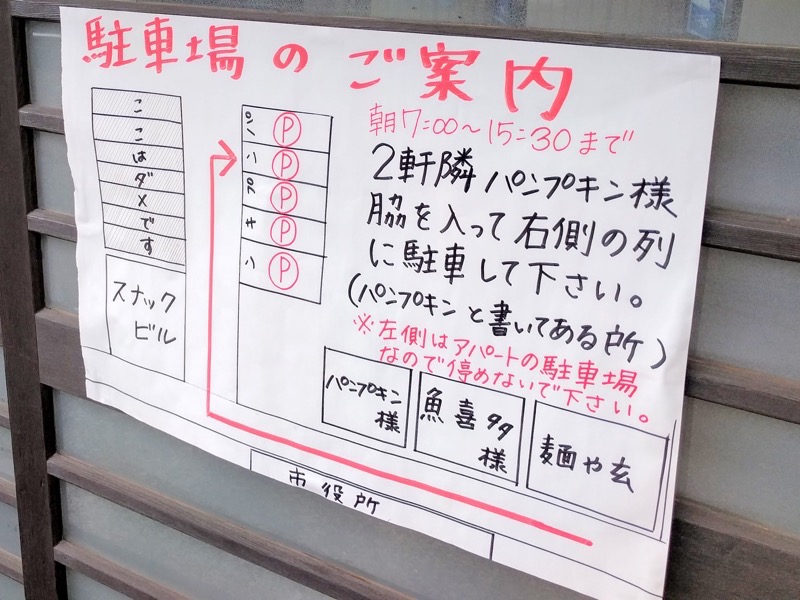 駐車場のご案内
朝7:00～15:30まで
2軒隣パンプキン様
脇を入って右側の列
に駐車して下さい。
(パンプキンと書いてある所)
※左側はアパートの駐車場
なので停めないで下さい。
こ
こ
は
ダ
メ
で
す
スナック
ビル
P
P
P
P
P
パンプキン
様
魚喜多
様
麺や玄
市役所